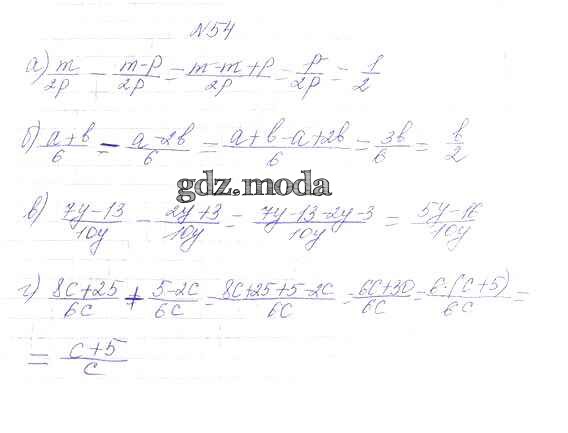 №54
а) m/2p - m-p/2p = m-m+p/2p = p/2p = 1/2
б) a+b/6 - a-2b/6 = a+b-a+2b/6 = 3b/6 = b/2
gdz.moda
в) 7y-13/10y - 2y+3/10y = 7y-13-2y-3/10y = 5y-16/10y
г) 8c+25/6c + 5-2c/6c = 8c+25+5-2c/6c = 6c+30/6c = 6·(c+5)/6·c =
= c+5/c